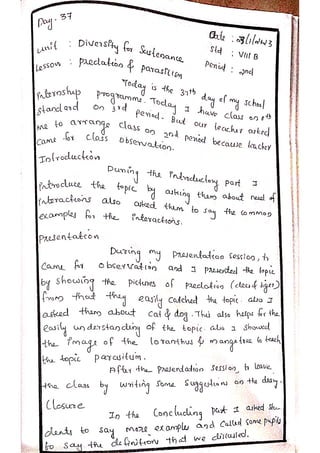 Day: 37
Date: /1/2023
Unit : Diversity for Sustenance
Std : VIII B
Lesson : Predation & parasitism
Period : 2nd
Today is the 37th day of my school
Internship programme. Today I have class on 8th
standard on 3rd period. But our teacher asked
me to arrange class on 2nd period because teacher
came for class observation.
Introduction
During the introductory part I
introduce the topic by asking them about need of
interactions also asked them to say the common
examples for the interactions.
Presentation
During my presentation session, tr
came for observation and I presented the topic
by showing the pictures of predation (deer & tiger)
from that they easily catched the topic. also I
asked them about cat & dog. This also helps for the
easily understanding of the topic also I showed
the image of the loranthus & mango tree to teach
the topic parasitism.
After the presentation session, tr leave
the class by writing some suggestions on the diary.
Closure
In the concluding part I asked stu
dents to say more examples and called some pupils
to say the definitions that we discussed.